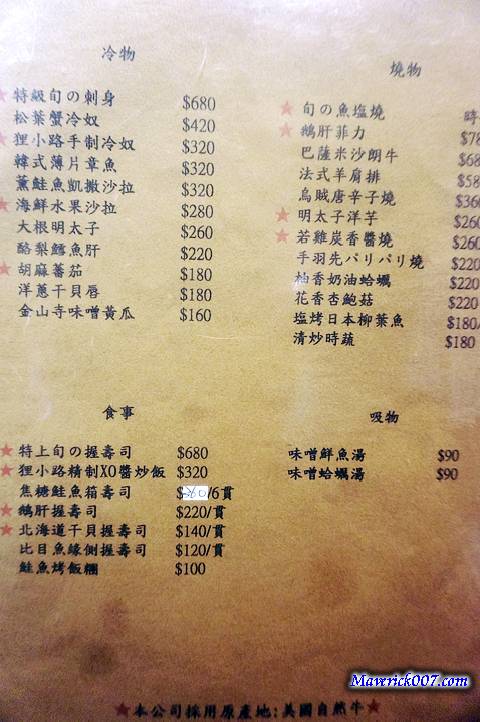 冷物
★特級旬の刺身 $680
松葉蟹冷奴 $420
★狸小路手制冷奴 $320
韓式薄片章魚 $320
薰鮭魚凱撒沙拉 $320
★海鮮水果沙拉 $280
大根明太子 $260
酪梨鱈魚肝 $220
★胡麻蕃茄 $180
洋蔥干貝唇 $180
金山寺味噌黃瓜 $160
燒物
★旬の魚塩燒 時
★鵝肝菲力 $78
巴薩米沙朗牛 $68
法式羊肩排 $58
烏賊唐辛子燒 $360
★明太子洋芋 $260
★若雞炭香醬燒 $260
手羽先パリパリ燒 $220
柚香奶油蛤蠣 $220
花香杏鮑菇 $220
塩烤日本柳葉魚 $180/
清炒時蔬 $180
食事
★特上旬の握壽司 $680
★狸小路精制XO醬炒飯 $320
焦糖鮭魚箱壽司 $260/6貫
★鵝肝握壽司 $220/貫
★北海道干貝握壽司 $140/貫
比目魚緣側握壽司 $120/貫
鮭魚烤飯糰 $100
吸物
味噌鮮魚湯 $90
味噌蛤蠣湯 $90
Maverick007.com
★本公司採用原產地:美國自然牛★